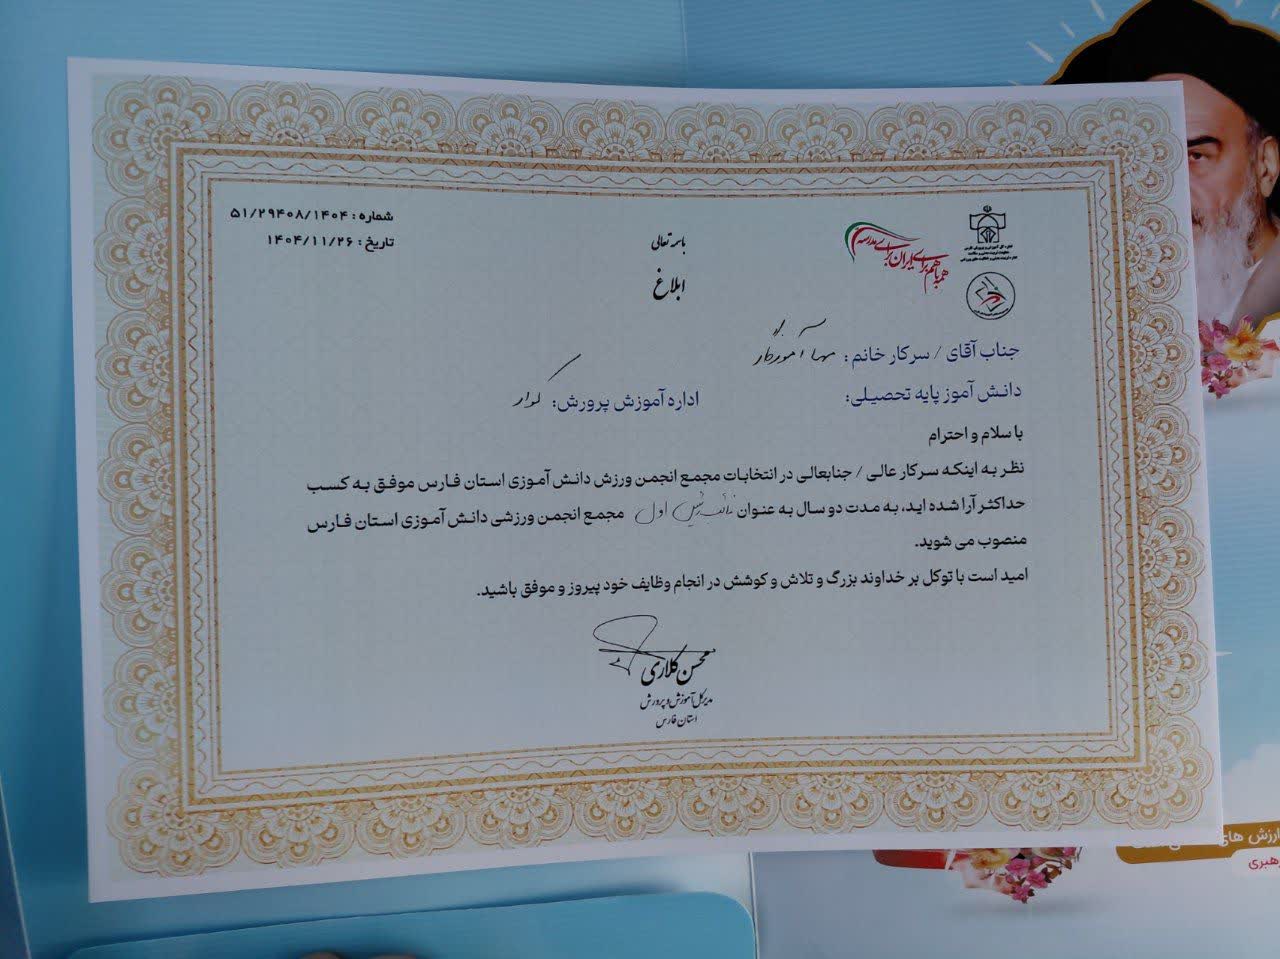 شماره : ۵۱/۲۹۴۰۸/۱۴۰۴
تاریخ : ۱۴۰۴/۱۱/۲۶
همه با هم برای ایران برای مدرسه
باسمه تعالی
ابلاغ
جناب آقای / سرکار خانم : آموزگار
دانش آموز پایه تحصیلی:
اداره آموزش پرورش: کوار
با سلام و احترام
نظر به اینکه سرکار عالی / جنابعالی در انتخابات مجمع انجمن ورزش دانش آموزی استان فارس موفق به کسب
حداکثر آرا شده اید، به مدت دو سال به عنوان نائب رئیس اول مجمع انجمن ورزشی دانش آموزی استان فارس
منصوب می شوید.
امید است با توکل بر خداوند بزرگ و تلاش و کوشش در انجام وظایف خود پیروز و موفق باشید.
محسن کلاری
مدیرکل آموزش و پرورش
استان فارس
ارزش های